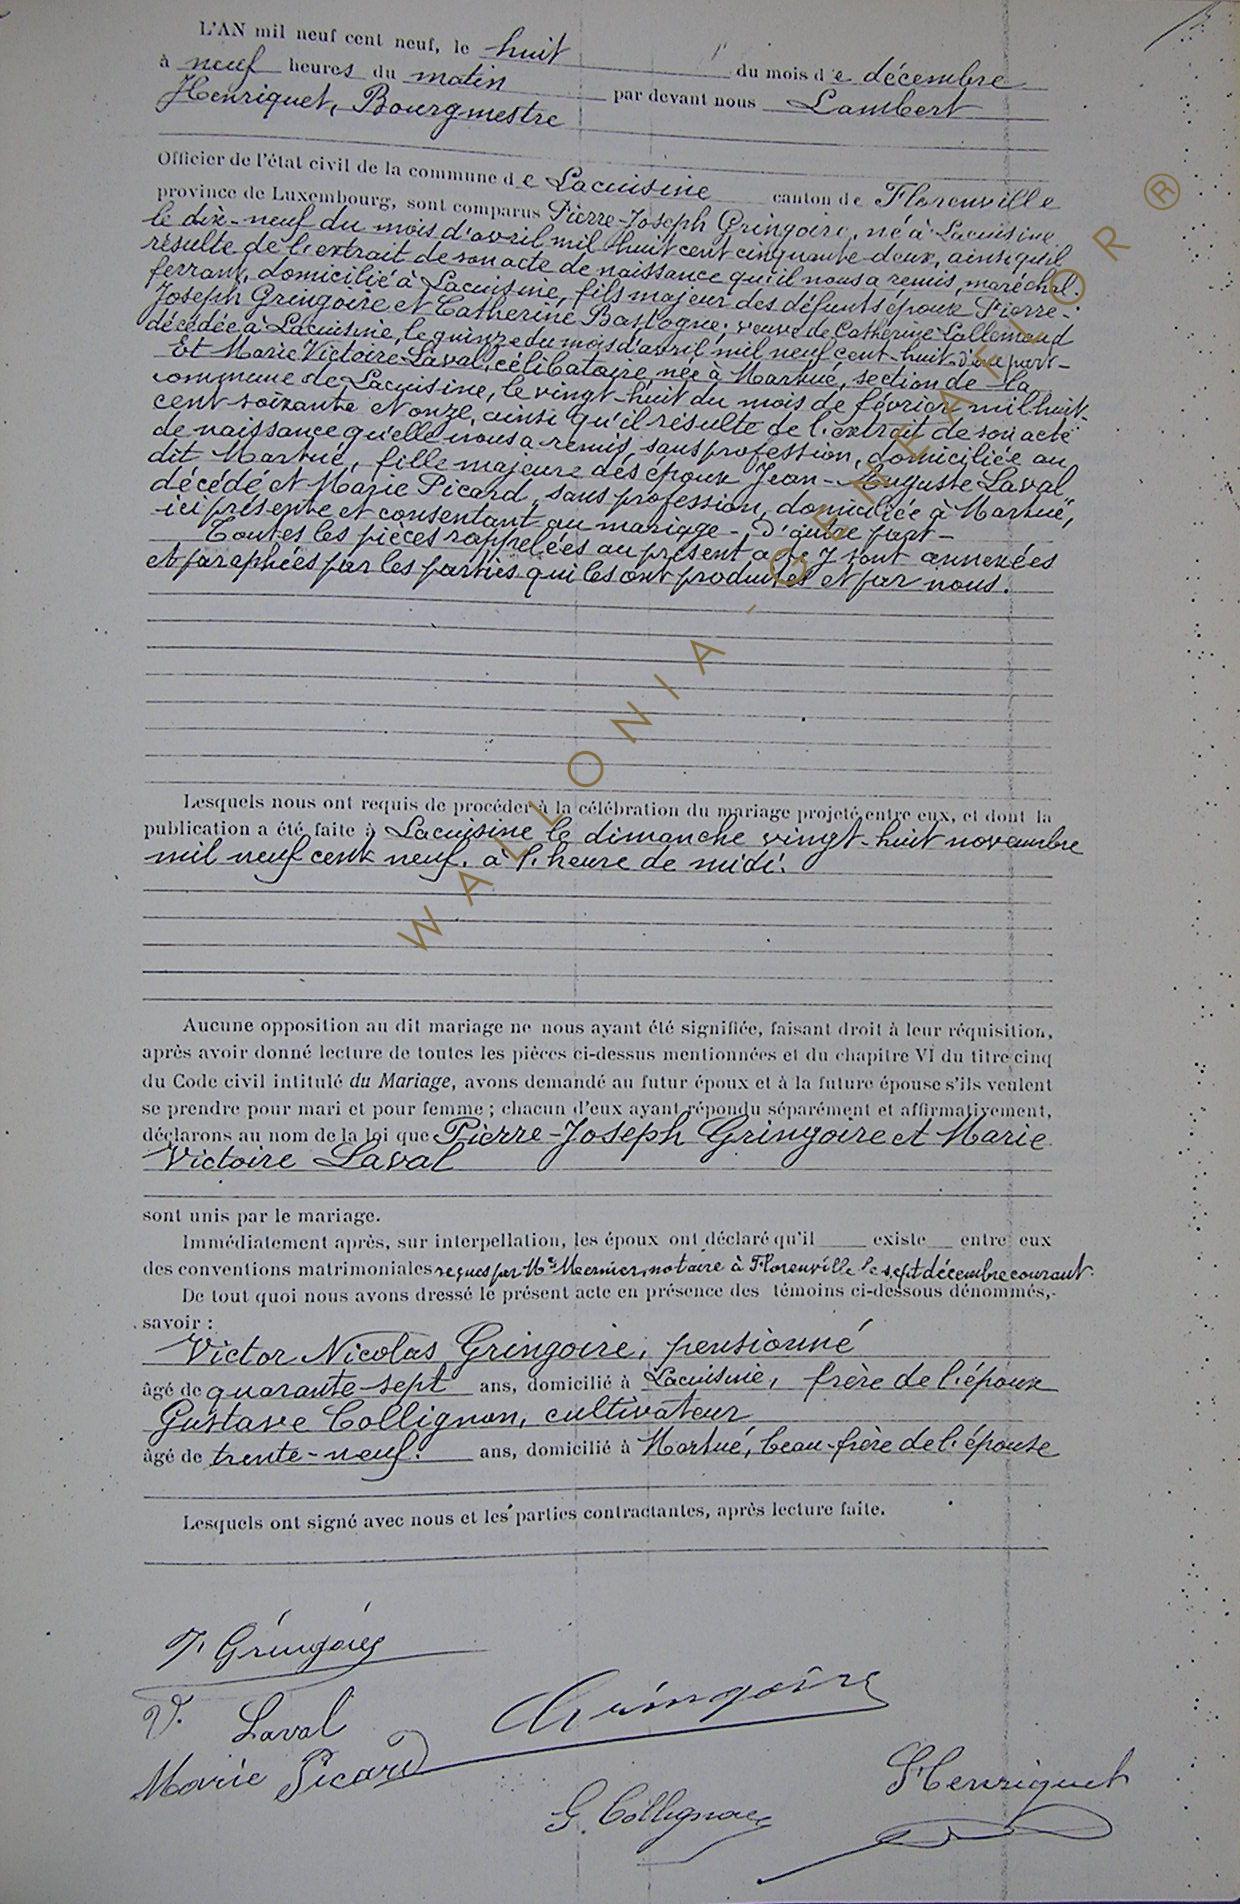 L'AN mil neuf cent neuf, le huit du mois de décembre
à neuf heures du matin par devant nous Lambert
Henriquet, Bourgmestre
Officier de l'état civil de la commune de Lacuisine canton de Florenville
province de Luxembourg, sont comparus Pierre-Joseph Gringoire, né à Lacuisine
le dix-neuf du mois d'avril mil huit cent cinquante-deux, ainsi qu'il
résulte de l'extrait de son acte de naissance qu'il nous a remis, maréchal-
ferrant, domicilié à Lacuisine, fils majeur des défunts époux Pierre-
Joseph Gringoire et Catherine Bastogne, veuve de Catherine Lallemand
décédée à Lacuisine, le quinze du mois d'avril mil neuf cent-huit d'une part-
Et Marie Victoire Laval, célibataire née à Martué, section de la
commune de Lacuisine, le vingt-huit du mois de février mil huit-
cent soixante et onze, ainsi qu'il résulte de l'extrait de son acte
de naissance qu'elle nous a remis, sans profession, domiciliée au
dit Martué, fille majeure des époux Jean-Auguste Laval
décédé et Marie Picard, sans profession, domiciliée à Martué,
ici présente et consentant au mariage-, d'autre part-
Toutes les pièces rappelées au présent acte y sont annexées
et paraphées par les parties qui les ont produites et par nous.
Lesquels nous ont requis de procéder à la célébration du mariage projeté entre eux, et dont la
publication a été faite à Lacuisine le dimanche vingt-huit novembre
mil neuf cent neuf, à l'heure de midi.
Aucune opposition au dit mariage ne nous ayant été signifiée, faisant droit à leur réquisition,
après avoir donné lecture de toutes les pièces ci-dessus mentionnées et du chapitre VI du titre cinq
du Code civil intitulé du Mariage, avons demandé au futur époux et à la future épouse s'ils veulent
se prendre pour mari et pour femme ; chacun d'eux ayant répondu séparément et affirmativement,
déclarons au nom de la loi que Pierre-Joseph Gringoire et Marie
Victoire Laval
sont unis par le mariage.
Immédiatement après, sur interpellation, les époux ont déclaré qu'il existe entre eux
des conventions matrimoniales reçues par Me Mernier, notaire à Florenville le sept décembre courant.
De tout quoi nous avons dressé le présent acte en présence des témoins ci-dessous dénommés,
savoir :
Victor Nicolas Gringoire, pensionné
âgé de quarante-sept ans, domicilié à Lacuisine, frère de l'époux
Gustave Collignon, cultivateur
âgé de trente-neuf. ans, domicilié à Martué, beau-frère de l'épouse
Lesquels ont signé avec nous et les parties contractantes, après lecture faite.
Gringoire
V. Laval
Gringoire
Marie Picard
G. Collignon
Henriquet
WALLONIA - GENEALOR ®